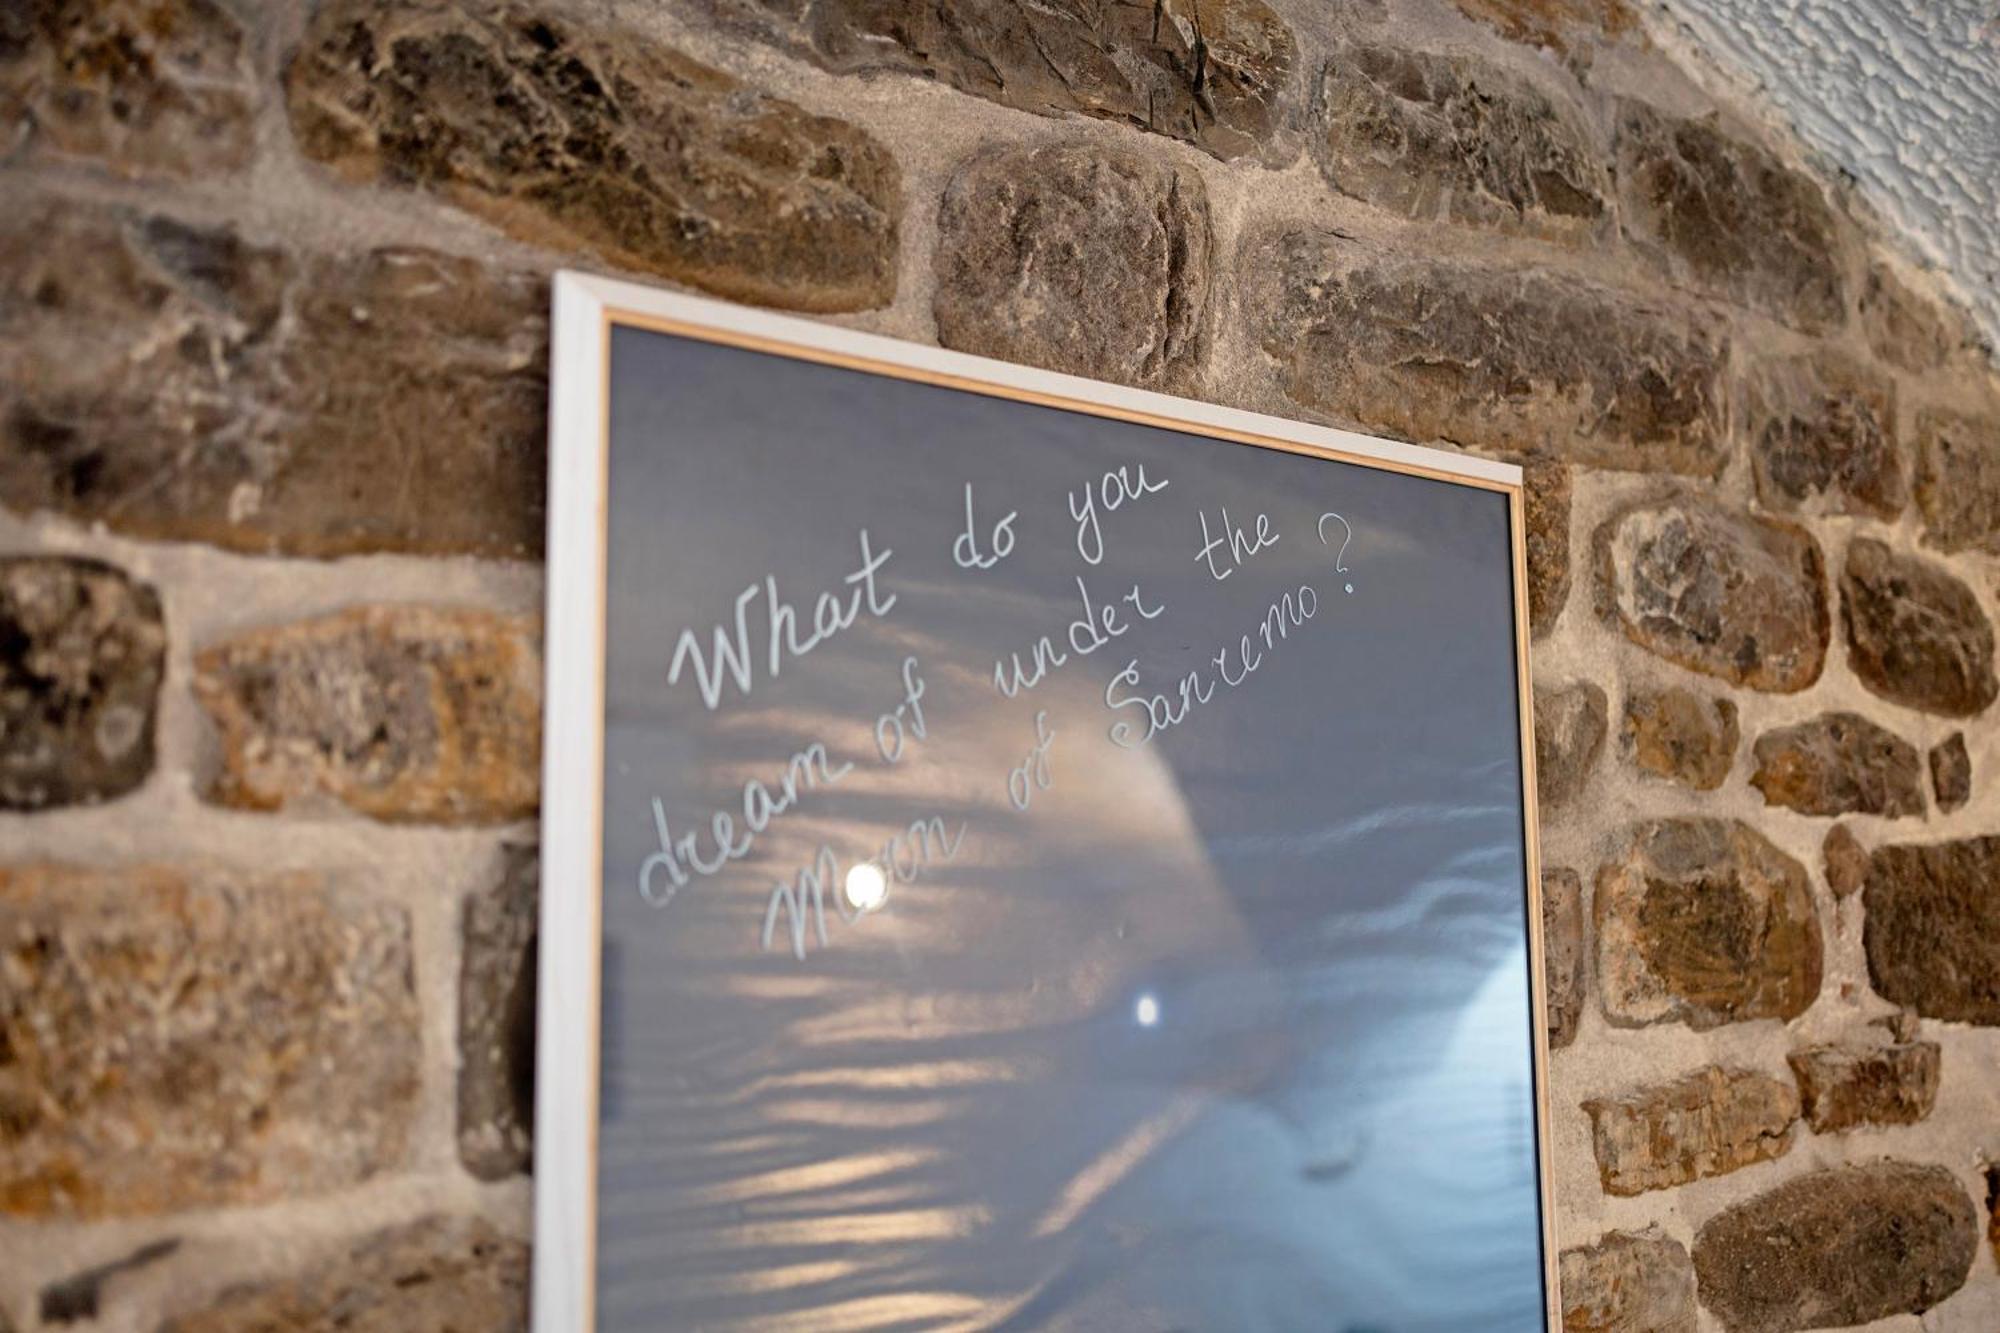 What do you
dream of under the
Moon of Sanremo?